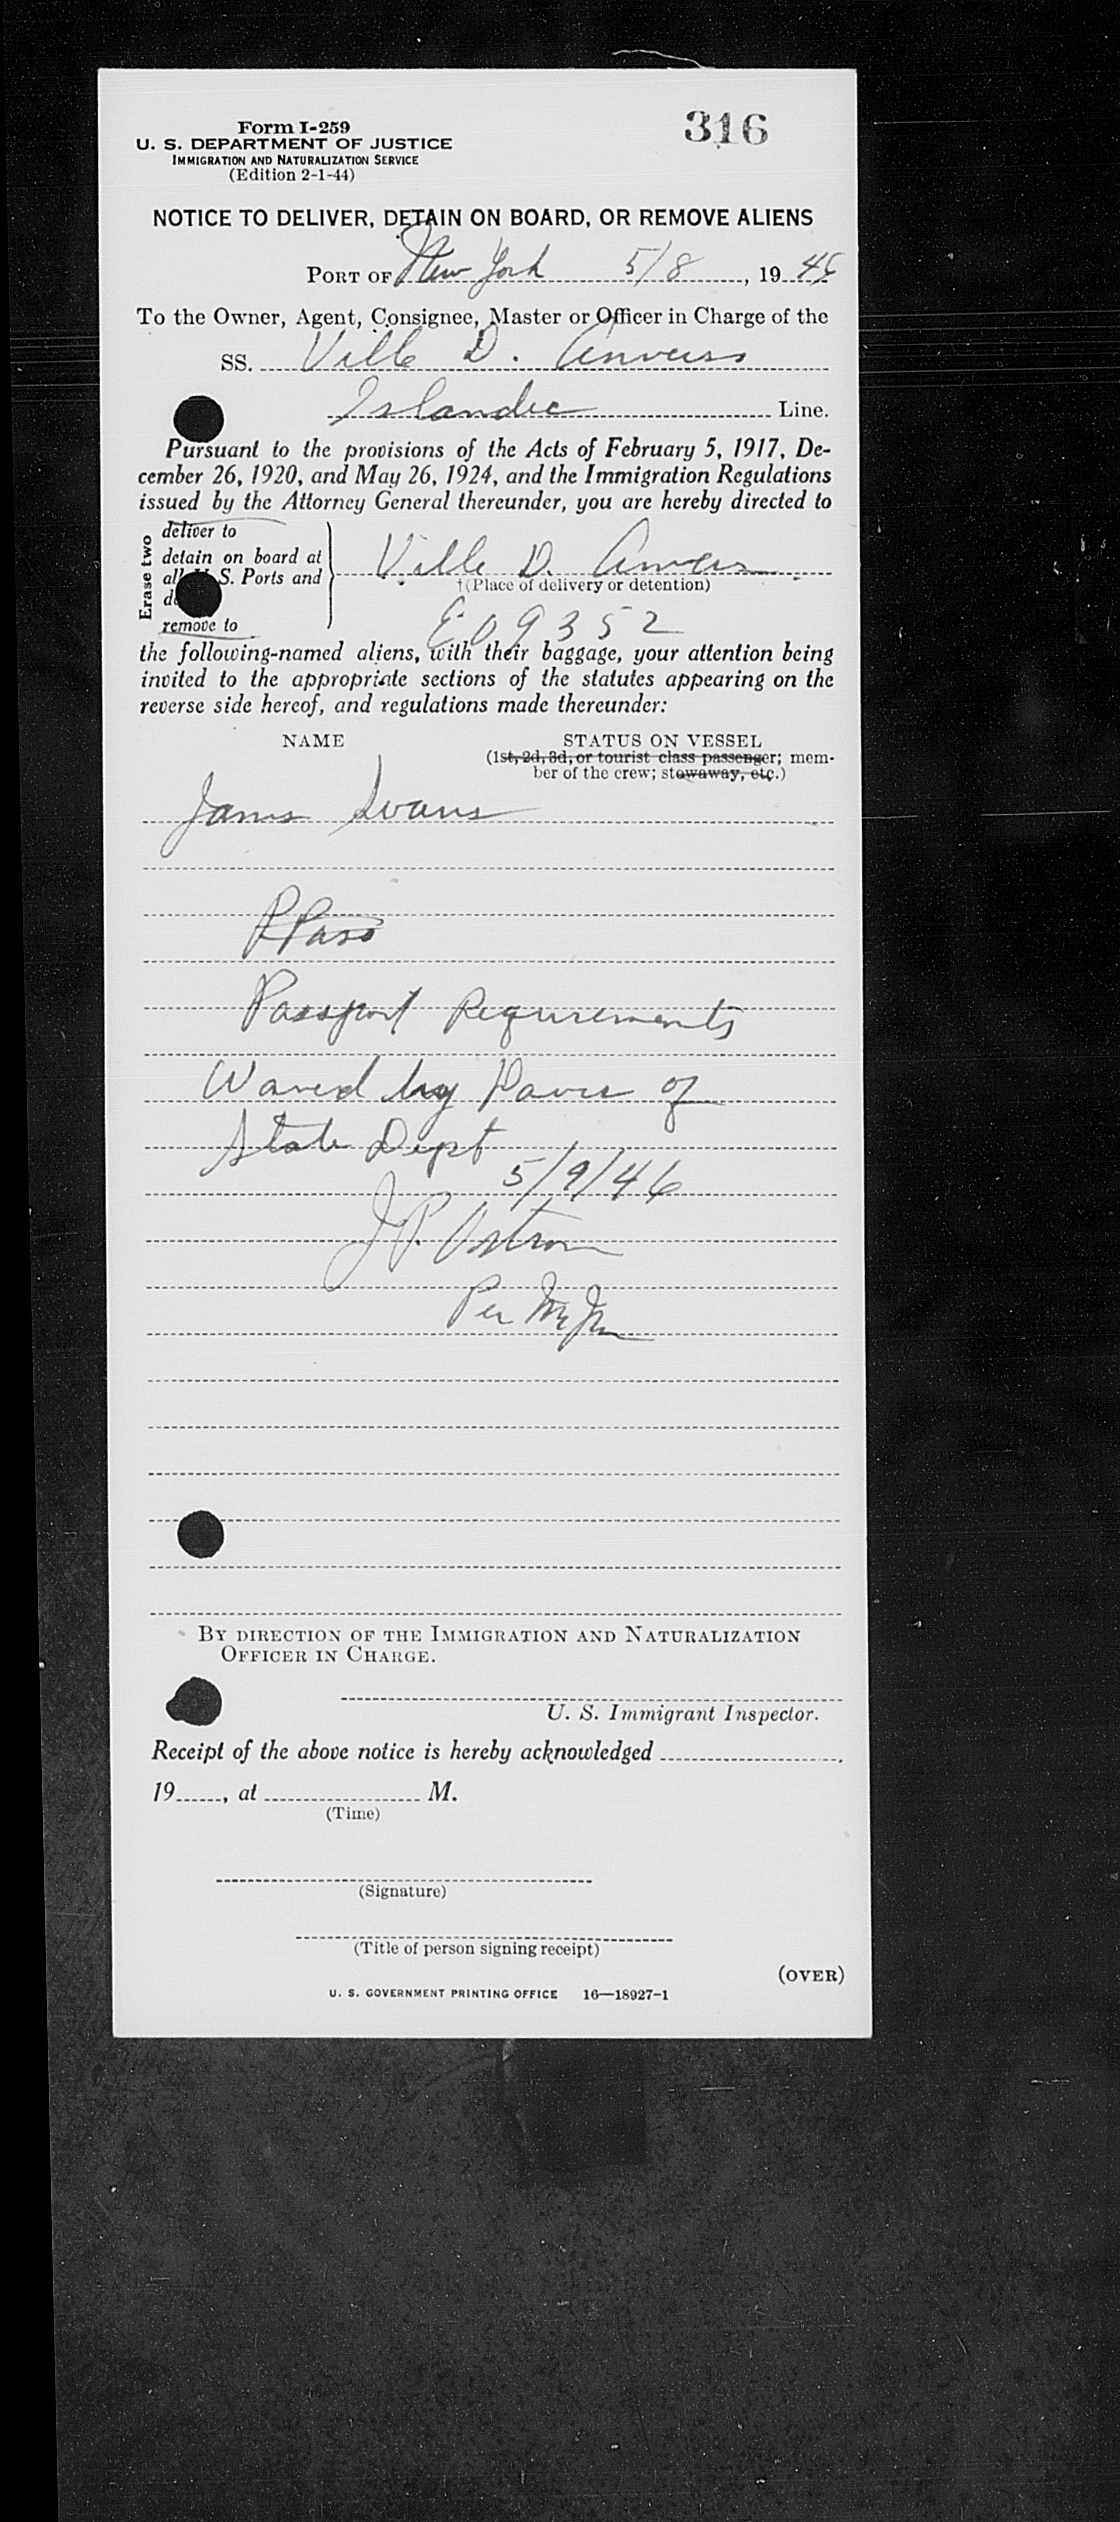 316
Form I-259
U. S. DEPARTMENT OF JUSTICE
IMMIGRATION AND NATURALIZATION SERVICE
(Edition 2-1-44)
NOTICE TO DELIVER, DETAIN ON BOARD, OR REMOVE ALIENS
PORT OF New York 5/8, 1946
To the Owner, Agent, Consignee, Master or Officer in Charge of the
SS. Ville D. Anvers
Line.
Pursuant to the provisions of the Acts of February 5, 1917, De-
cember 26, 1920, and May 26, 1924, and the Immigration Regulations
issued by the Attorney General thereunder, you are hereby directed to
Erase two
deliver to
detain on board at
all U. S. Ports and
remove to
Ville D. Anvers
†(Place of delivery or detention)
E 09352
the following-named aliens, with their baggage, your attention being
invited to the appropriate sections of the statutes appearing on the
reverse side hereof, and regulations made thereunder:
NAME
STATUS ON VESSEL
(1st, 2d, 3d, or tourist class passenger; mem-
ber of the crew; stowaway, etc.)
James Evans
Passport Requirements
Waved by Davis of
State Dept 5/9/46
J.P. Ostrom
Per
BY DIRECTION OF THE IMMIGRATION AND NATURALIZATION
OFFICER IN CHARGE.
U. S. Immigrant Inspector.
Receipt of the above notice is hereby acknowledged
19, at M.
(Time)
(Signature)
(Title of person signing receipt)
(OVER)
U. S. GOVERNMENT PRINTING OFFICE 16—18927-1